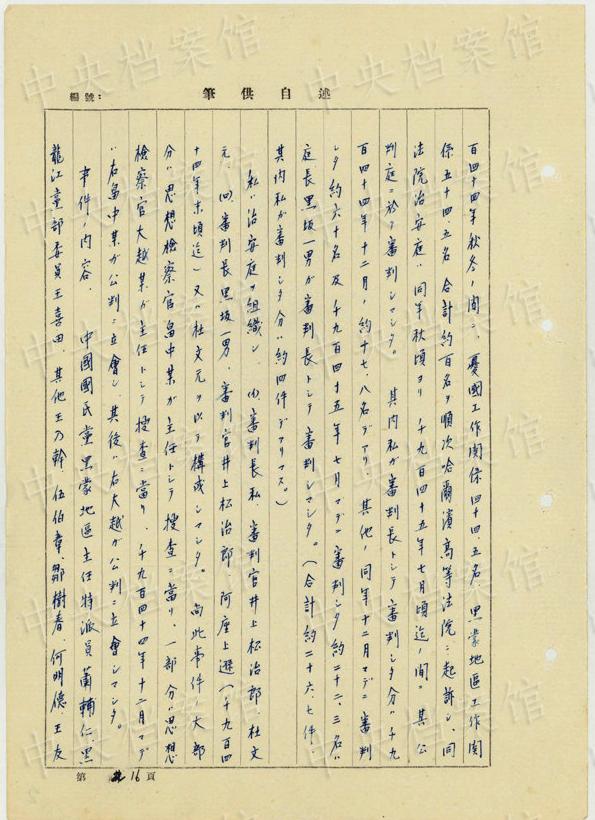 述自供筆
編號：
百四十四年秋冬ノ間ニ、憂國工作関係四十四、五名、黒蒙地區工作関
係五十四、五名 合計約百名ヲ順次哈爾濱高等法院ニ起訴シ、同
法院治安庭ハ同年秋頃ヨリ 千九百四十五年七月頃迄ノ間ニ 其公
判庭ニ於テ審判シマシタ。 其内私ガ審判長トシテ審判シタ分ハ千九
百四十四年十二月ノ約十七、八名デアリ、其他ノ同年十二月マデニ審判
シタ約六十名及 千九百四十五年七月マデニ審判シタ約二十二、三名ハ
庭長黒坂一男ガ審判長トシテ審判シマシタ。（合計約二十六、七件、
其内私ガ審判シタ分ハ約四件デアリマス。）
私ハ治安庭ヲ組織シ、(イ)、審判長私 審判官井上松治郎、杜文
元、(ロ)、審判長黒坂一男、審判官井上松治郎、阿座上遜（千九百四
十四年末頃迄）又ハ杜文元ヲ以テ構成シマシタ。 尚此事件ノ大部
分ハ思想検察官畠中某ガ主任トシテ捜査ニ當リ、一部分ハ思想
検察官大越某ガ主任トシテ捜査ニ當リ、千九百四十四年十二月マデ
ハ右畠中某ガ公判ニ立會シ、其後ハ右大越ガ公判ニ立會シマシタ。
事件ノ内容、 中國國民黨黒蒙地區主任特派員蘭輔仁、黒
龍江黨部委員王喜田、其他王乃幹 伍伯韋、鄒樹春、何明德 王友
第 16 頁
中央档案馆